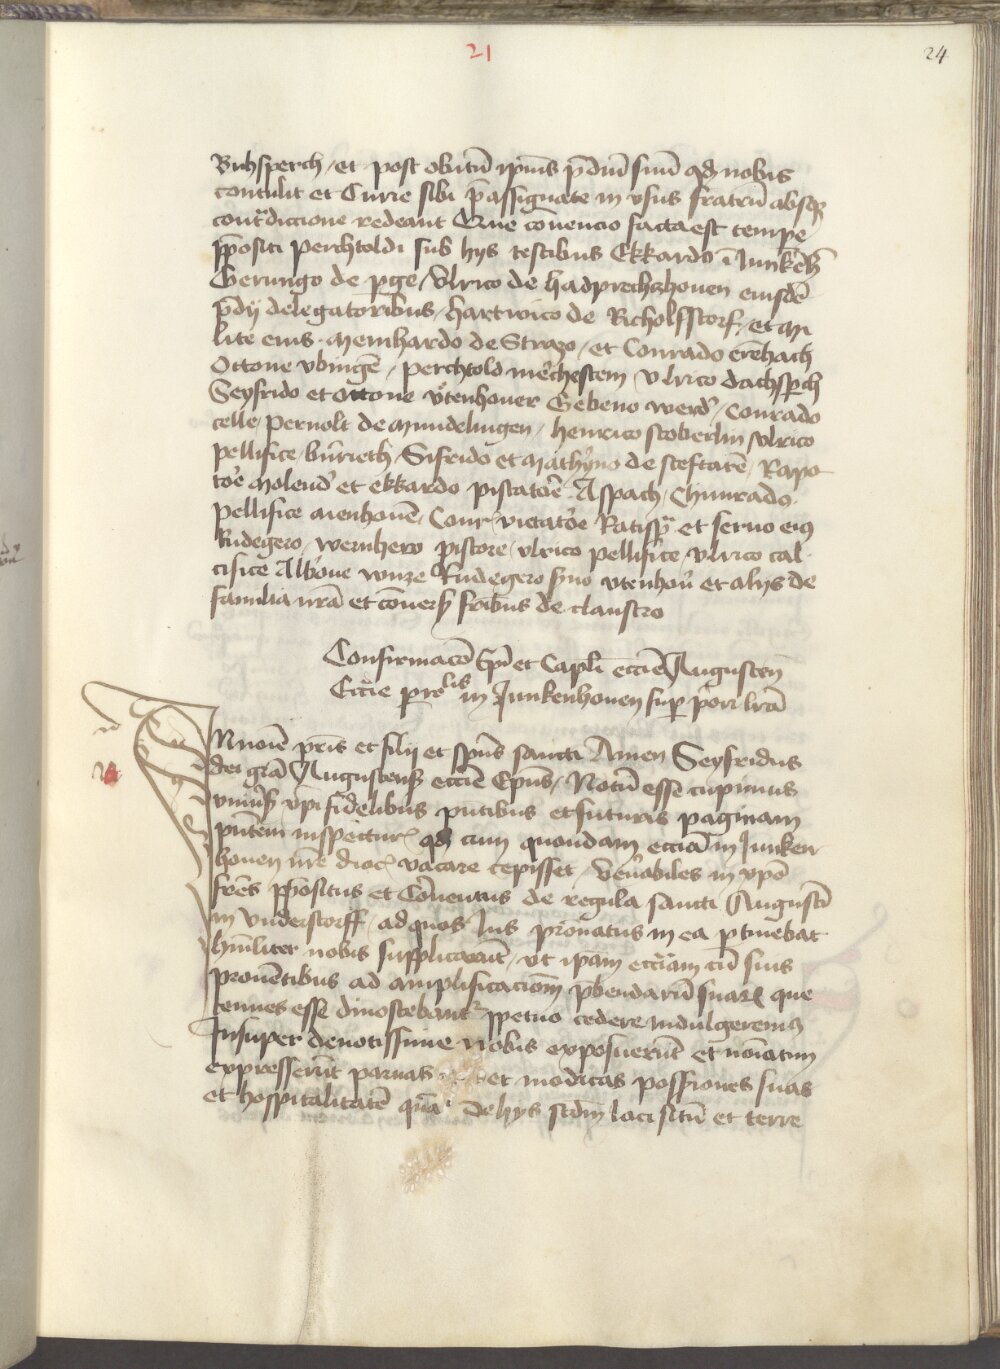 21
24
Buhsperch / et post obitū ipius p̄diū suū qd nobis
contulit et Curie sibi p̄assignate in vsus fratrū absqꝫ
contᵃdiccione redeant Que cōuencio facta est tempē
ꝓpositi Perchtoldi sub hys testibus Ekkardo ī Junkēh̄
Gerungo de pge / Vlrico de hadprechzhouen eiusdē
p̄dy delegatoribus / hartwico de Richolfstorf / et mi
lite eius . Meinhardo de Strazo / et Conrado erēhach
Ottone vbingē / perchtold mēchestem / Vlrico dachsp̱ch
Seyfrido et Ottone vtenhouer Gebeno werd' / Conrado
celle / Pernolt de mundelingen / henrico scoberlin vlrico
pellifice / būrieth / Sifrido et Mathyno de steftatē / Rapo
tōe Molend' et ekkardo piscatōe Aspach / Chunrado
pellifice aienhouē / Conr' vietatōe Ratispᵃ et seruo eiꝰ
Rudegero / wernhero pistore / vlrico pellifice / vlrico cal
cifice Albōne wnze Rudegero syno vtenhoū et alys de
familia nrā et cōuersꝭ frībus de claustro
Confirmacō Epī et Capli eccīe Augusten
Circie prolis in Junkenhouen sup p̄ori lrā
In noīe pris et filij et spūs sancti Amen Seyfridus
dei grā Augustensꝭ eccīe Epūs / Notū esse cupimus
vniūsꝭ xpī fidelibus pn̄tibus et futuris paginam
pn̄tem inspectur' qd cum quondam ecciā in Junken
houen nr̄e dioc' vacare cepisset / veūabiles in xpō
frēs ꝓpositus et Cōuentus de regula sancti Augustī
in Vnderstorff / ad quos Ius pronatus in ea ptinebat
hūiliter nobis supplicarūt / vt ipam ecciam cū suis
prouētibus ad amplificaciōm p̄bendarū suarꝝ que
tenues esse dinoscebantᵘʳ ꝑpetuo cedere indulgeremꝰ
Insuper deuotissime nobis exposuerūt et noīatim
expresserūt paruas et modicas possiones suas
et hospitalitatē quā de hys scdm loci sitū et terre